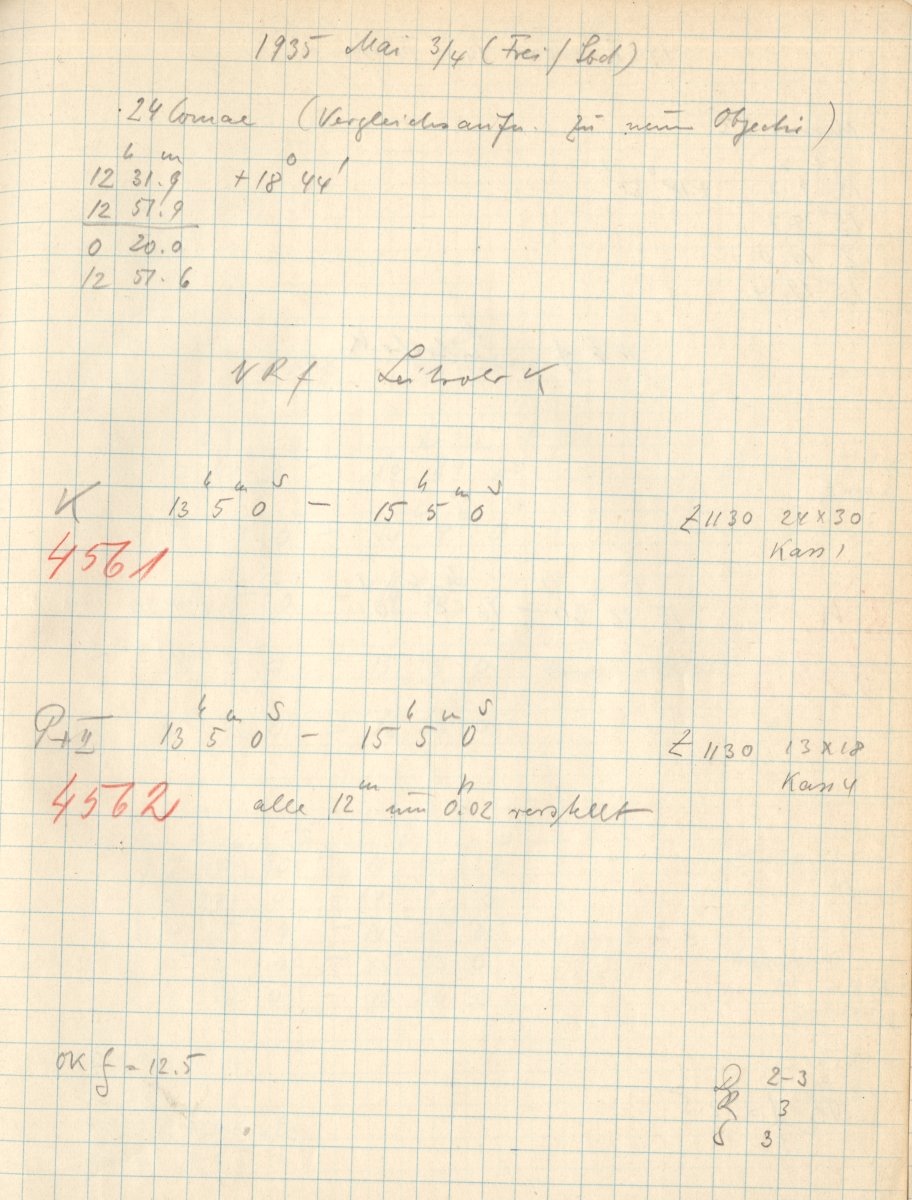 1935 Mai 3/4 (Frei/Sbd)
24 Comae (Vergleichsaufn. zu neuem Objectiv)
12h 31m.9 +18° 44'
12 51.9
0 20.0
12 51.6
NRf Leitrohr K
K 13h 5m 0s – 15h 5m 0s Z 1130 24×30
Kass 1
4561
P+II 13h 5m 0s – 15h 5m 0s Z 1130 13×18
Kass 4
4562 alle 12m um 0.02 verstellt
OK f = 12.5
2-3
R 3
S 3